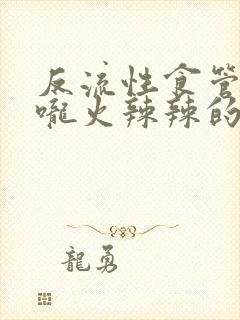 反流性食管
咙火辣辣的
龍勇